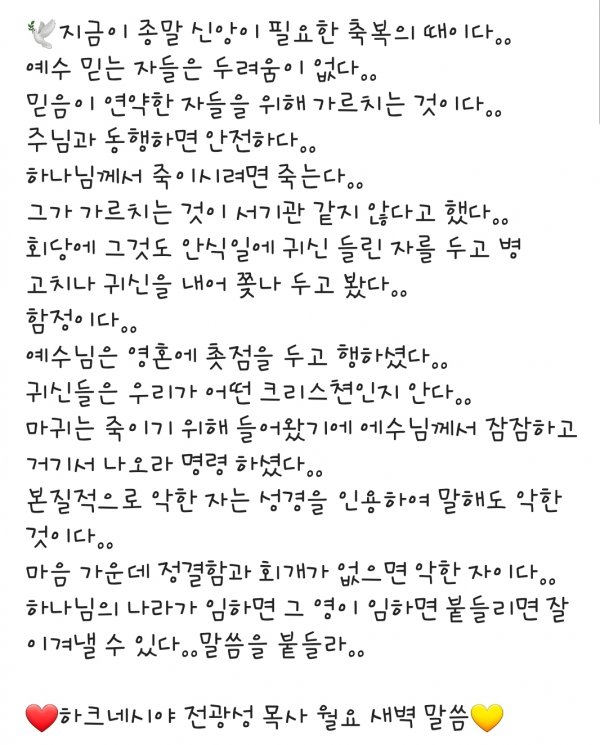 🕊지금이 종말 신앙이 필요한 축복의 때이다。。
예수 믿는 자들은 두려움이 없다。。
믿음이 연약한 자들을 위해 가르치는 것이다。。
주님과 동행하면 안전하다。。
하나님께서 죽이시려면 죽는다。。
그가 가르치는 것이 서기관 같지 않다고 했다。。
회당에 그것도 안식일에 귀신 들린 자를 두고 병
고치나 귀신을 내어 쫓나 두고 봤다。。
함정이다。。
예수님은 영혼에 촛점을 두고 행하셨다。。
귀신들은 우리가 어떤 크리스쳔인지 안다。。
마귀는 죽이기 위해 들어왔기에 에수님께서 잠잠하고
거기서 나오라 명령 하셨다。。
본질적으로 악한 자는 성경을 인용하여 말해도 악한
것이다。。
마음 가운데 정결함과 회개가 없으면 악한 자이다。。
하나님의 나라가 임하면 그 영이 임하면 붙들리면 잘
이겨낼 수 있다。。말씀을 붙들라。。
❤하크네시야 전광성 목사 월요 새벽 말씀💛